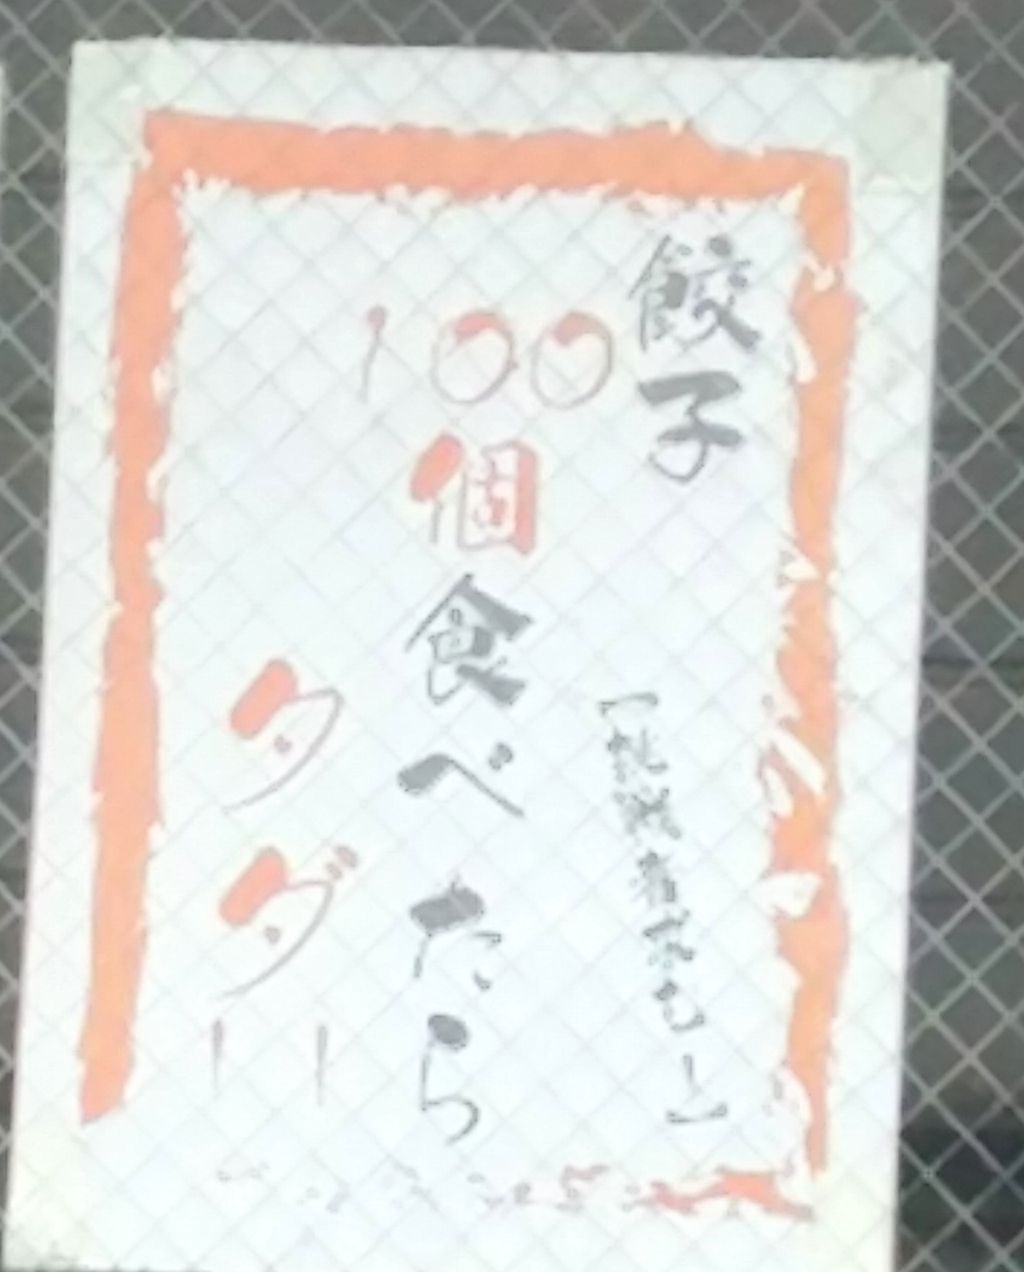 餃子
【挑戦者求む!】
100個食べたら
タダ!!